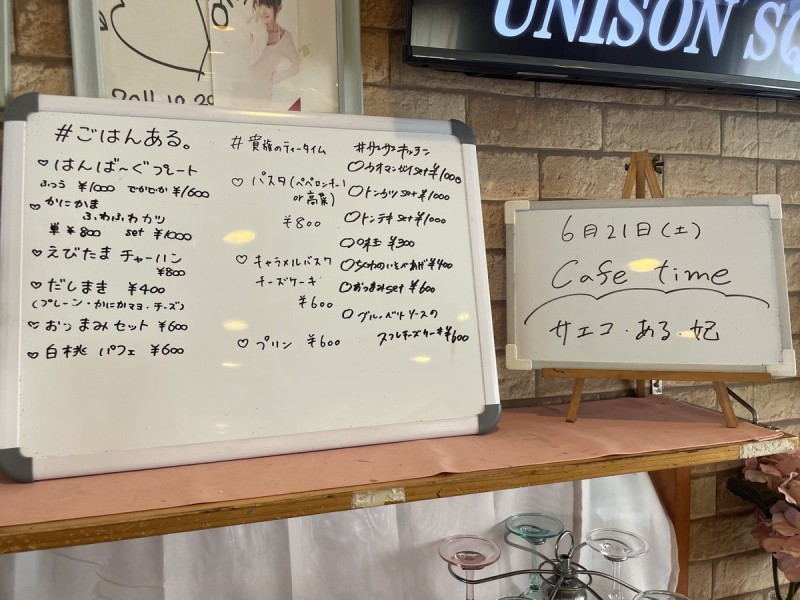 UNISON SQ
2011.10.29
#ごはんある。
♡はんば〜ぐプレート
ふつう ¥1000 でかでか ¥1600
♡かにかま
ふわふわカツ
単¥800 set ¥1000
♡えびたま チャーハン
¥800
♡だしまき ¥400
(プレーン・かにかマヨ・チーズ)
♡おつまみセット ¥600
♡白桃 パフェ ¥600
#貴族のティータイム
♡パスタ(ペペロンチーノ
or 高菜)
¥800
♡キャラメルバスク
チーズケーキ
¥600
♡プリン ¥600
#サエサエキッチン
○カオマンガイset ¥1000
○トンカツset ¥1000
○トンテキset ¥1000
○味玉 ¥300
○ちくわのいそべあげ ¥400
○おつまみset ¥600
○ブルーベリーソースの
スフレチーズケーキ ¥600
6月21日(土)
Cafe time
サエコ・ある・妃